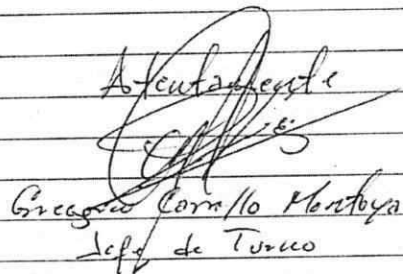 Atentamente
Gregorio Carrillo Montoya
Jefe de Turno